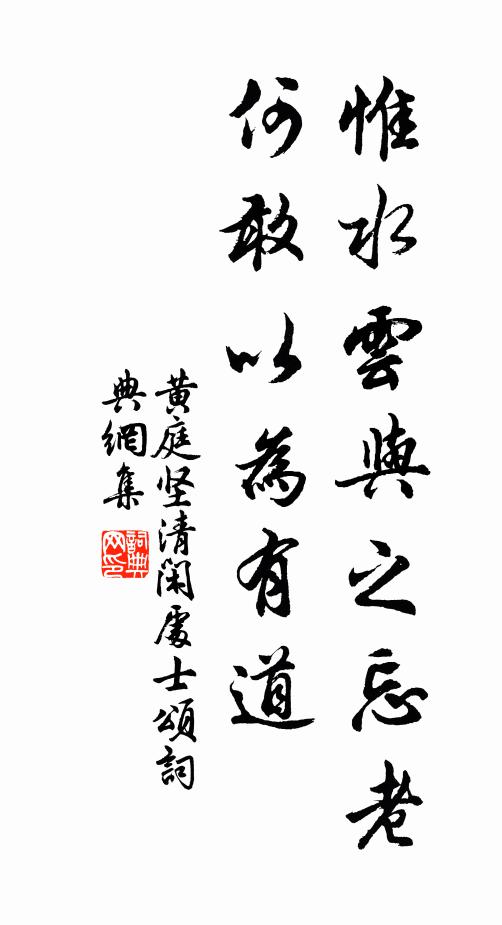 惟水雲與之忘老
何敢以為有道
黄庭坚清閑處士頌詞
典網集
詞典网印